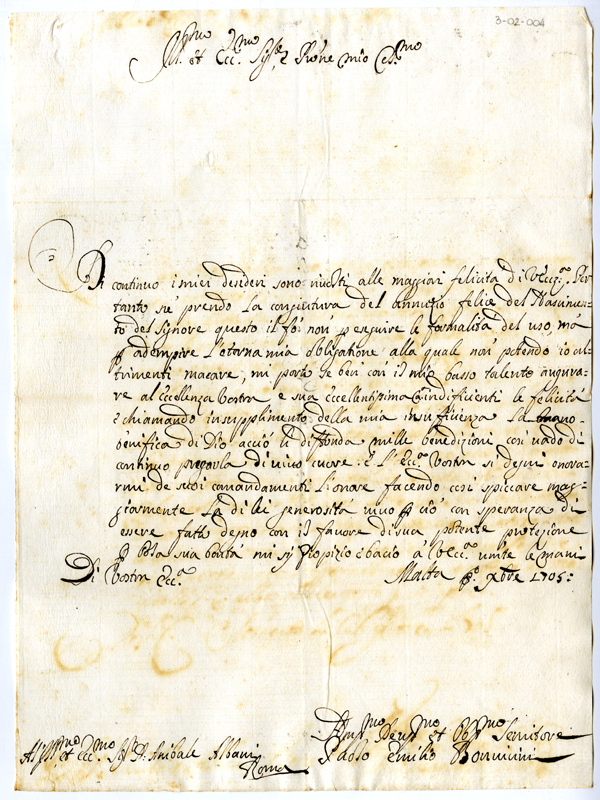 3-02-004
Ill.mo et Ecc.mo Sig.re e Prone mio Col.mo
Di continuo i miei desideri sono rivolti alle maggiori felicità di V. Ecc.a Per
tanto prendo la congiuntura del annuzio felice del Nascimen-
to del Signore questo il fò non p eseguire le formalità del uso, ma
p adempire l'eterna mia obligatione alla quale non potendo io al-
trimenti macare, mi porto se ben con il mio basso talento augura-
re al Eccellenza Vostra e sua Eccellentissima indificienti le felicità
e chiamando in supplimento della mia insufficienza la mano
benifica di Dio acciò li diffonda mille benedizioni così vado di
continuo pregarla di vivo cuore: è l'Ecc.a Vostra si degni onorar-
mi de suoi comandamenti l'ionore facendo così spiccare mag-
giormente la di lei generosità vivo p ciò con speranza di
essere fatto degno con il favore di sua potente protezione
p sua bontà mi e bacio a V. Ecc.a umte le mani
Di Vostra Ecc.a Malta p.o Xbre 1705:
Hum.mo Deu.mo et Obl.mo Servitore
All Ill.mo et Ecc.mo Sig.r D. Anibale Albani Paolo Emilio
Roma